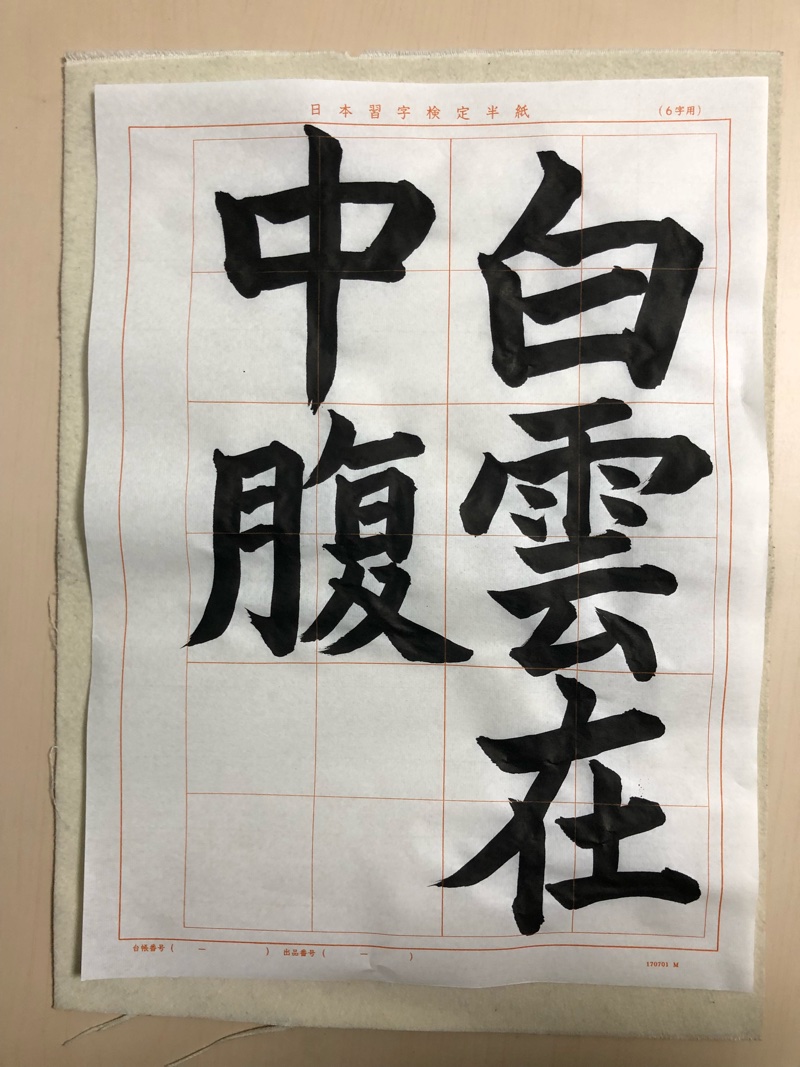 日本習字検定半紙
(6字用)
白雲在
中腹
台帳番号( ー ) 出品番号( ー )
170701 M